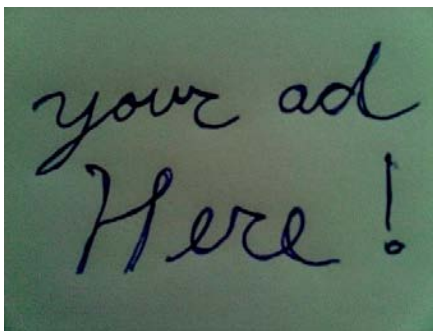 your ad
Here!